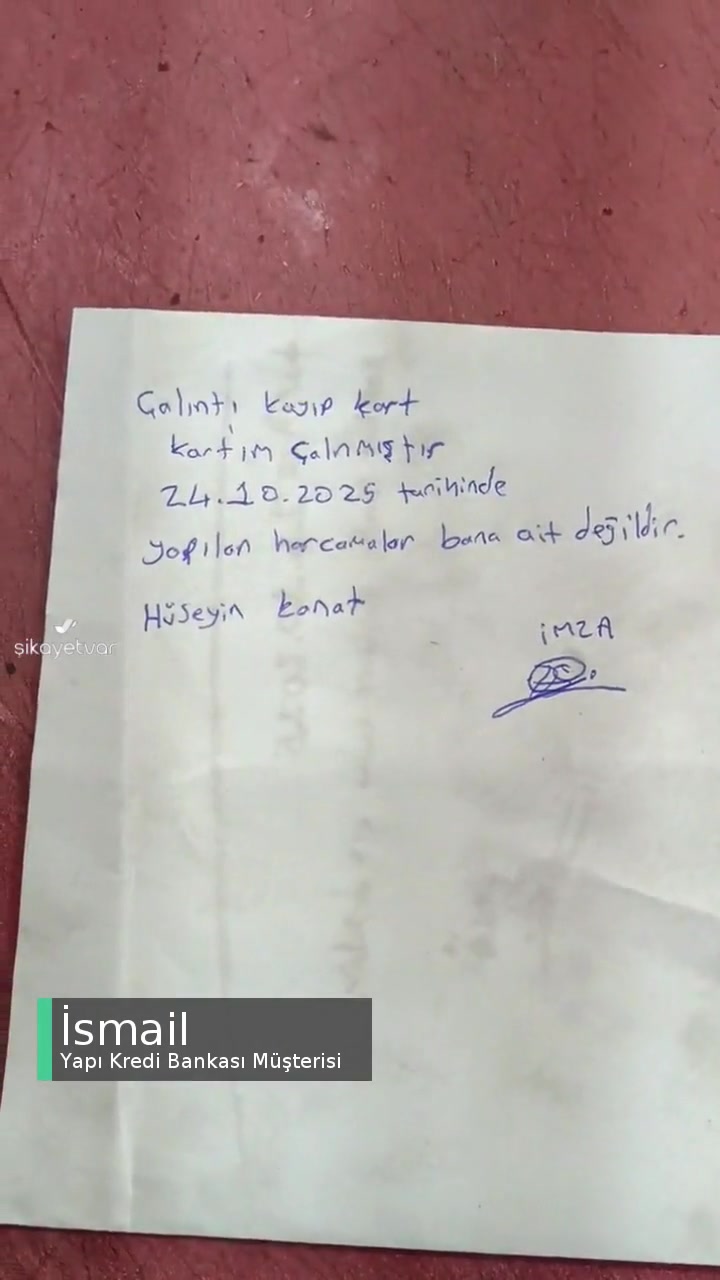 Çalıntı kayıp kart
kartım çalnmıştır
24.10.2025 tarihinde
yapılan harcamalar bana ait değildir.
Hüseyin konat
İMZA
şikayetvar
İsmail
Yapı Kredi Bankası Müşterisi